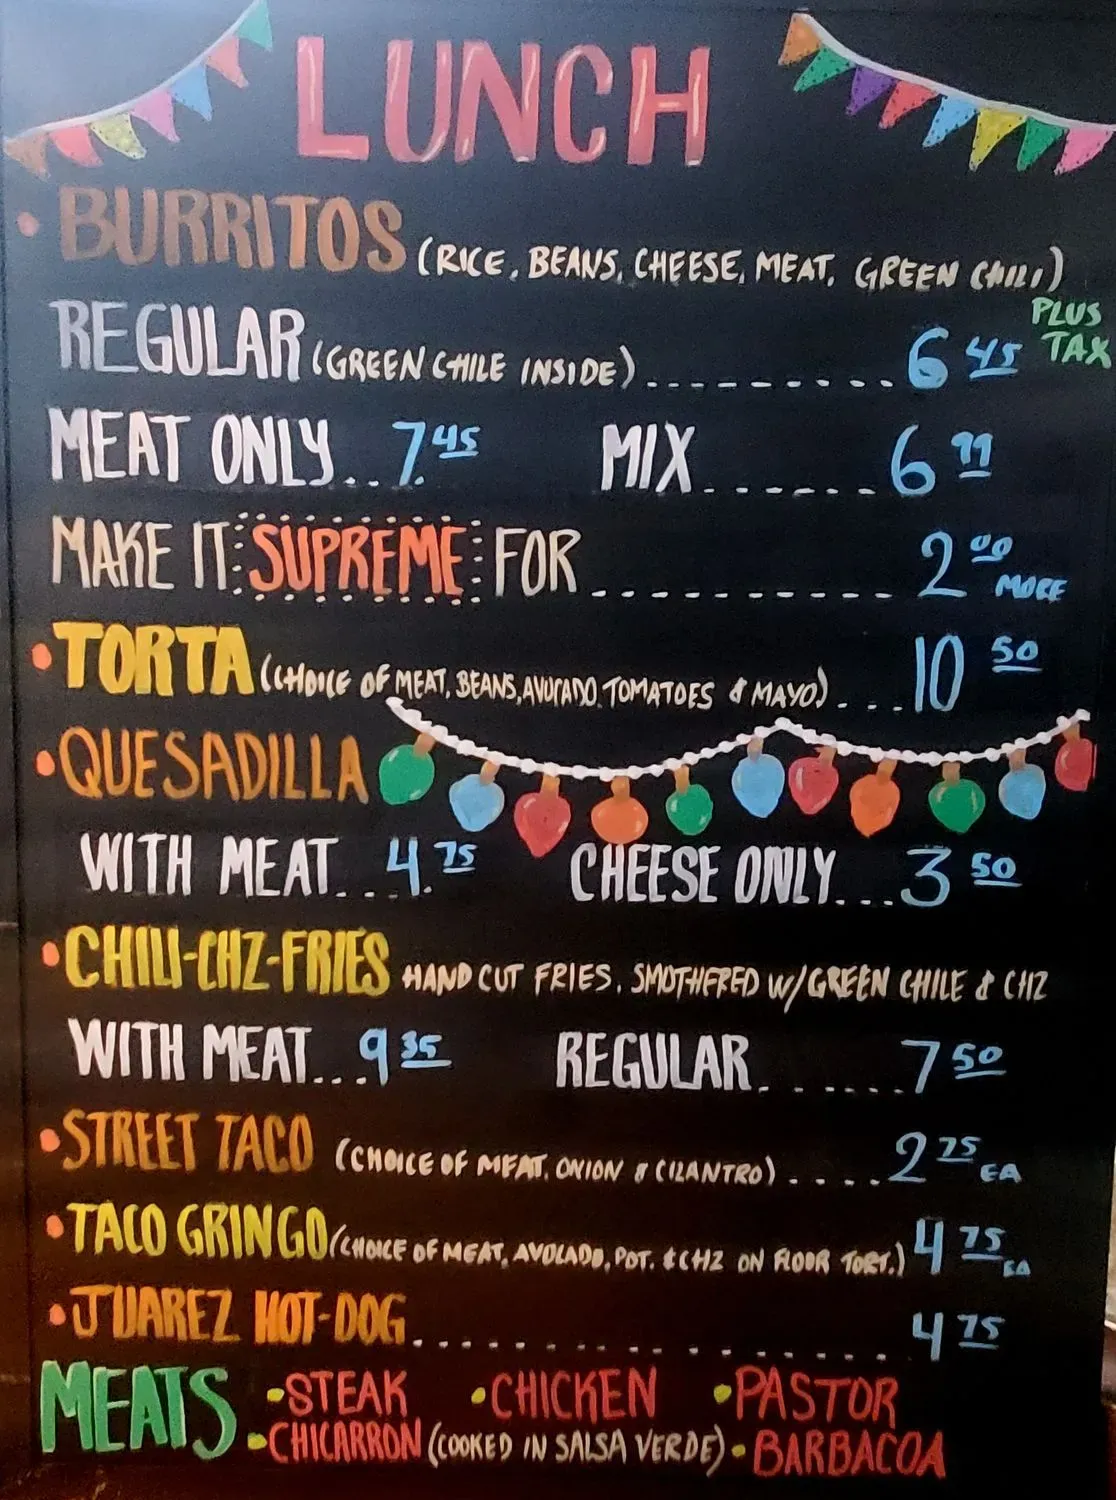 LUNCH
• BURRITOS (RICE, BEANS, CHEESE, MEAT, GREEN CHILI)
PLUS
TAX
REGULAR (GREEN CHILE INSIDE) 6 45
MEAT ONLY.. 7.45 MIX 6 99
MAKE IT SUPREME FOR 2 00
MORE
• TORTA (CHOICE OF MEAT, BEANS, AVOCADO. TOMATOES & MAYO) 10 50
• QUESADILLA
WITH MEAT... 4.75 CHEESE ONLY... 3 50
• CHILI-CHZ-FRIES HAND CUT FRIES, SMOTHERED W/GREEN CHILE & CHZ
WITH MEAT... 9 35 REGULAR....... 7 50
• STREET TACO (CHOICE OF MEAT, ONION & CILANTRO).... 2 75
EA
• TACO GRINGO (CHOICE OF MEAT, AVOCADO, POT. & CHZ ON FLOOR TORT.) 4 75
EA
• JUAREZ HOT-DOG 4 75
MEATS • STEAK • CHICKEN • PASTOR
• CHICARRON (COOKED IN SALSA VERDE) • BARBACOA